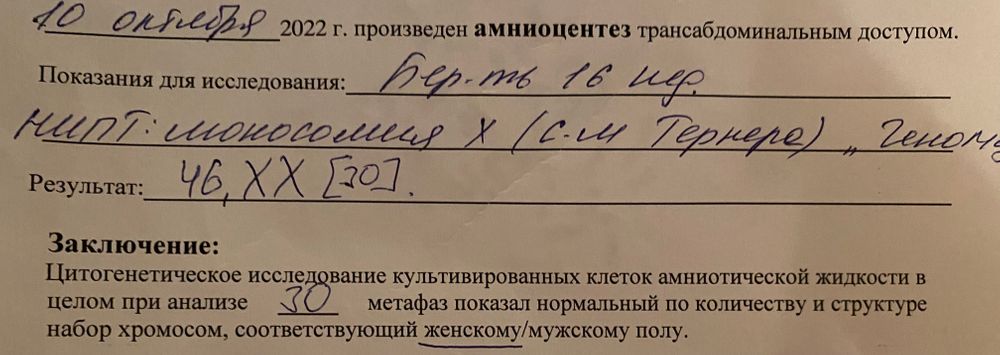 10 октября 2022 г. произведен амниоцентез трансабдоминальным доступом.
Показания для исследования: Бер-ть 16 нед.
НИПТ: моносомия X (с-м Тернера) „Геном
Результат: 46,XX [30].
Заключение:
Цитогенетическое исследование культивированных клеток амниотической жидкости в
целом при анализе 30 метафаз показал нормальный по количеству и структуре
набор хромосом, соответствующий женскому/мужскому полу.